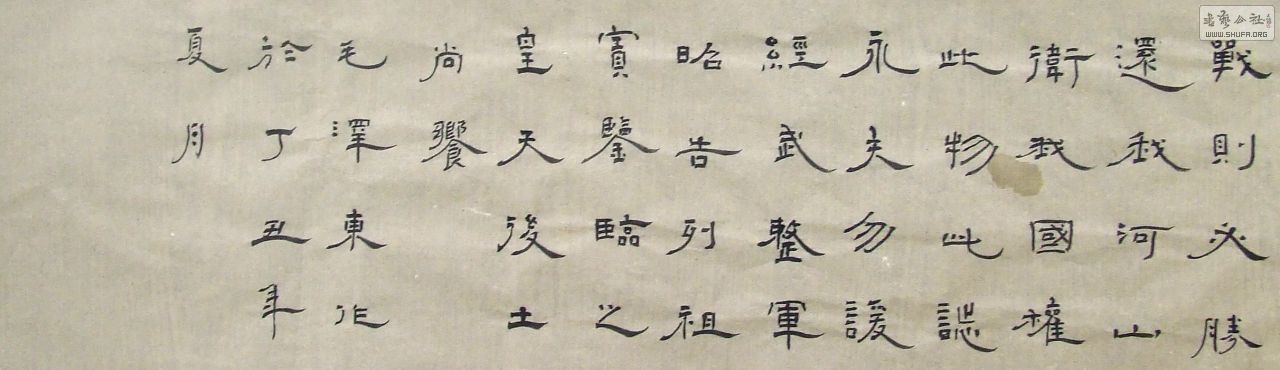 戰則必勝
還我河山
衛我國權
此物此誌
永矢勿諼
經武整軍
昭告列祖
實鑒臨之
皇天後土
尚饗
毛澤東作
於丁丑年
夏月
书艺公社
WWW.SHUFA.ORG